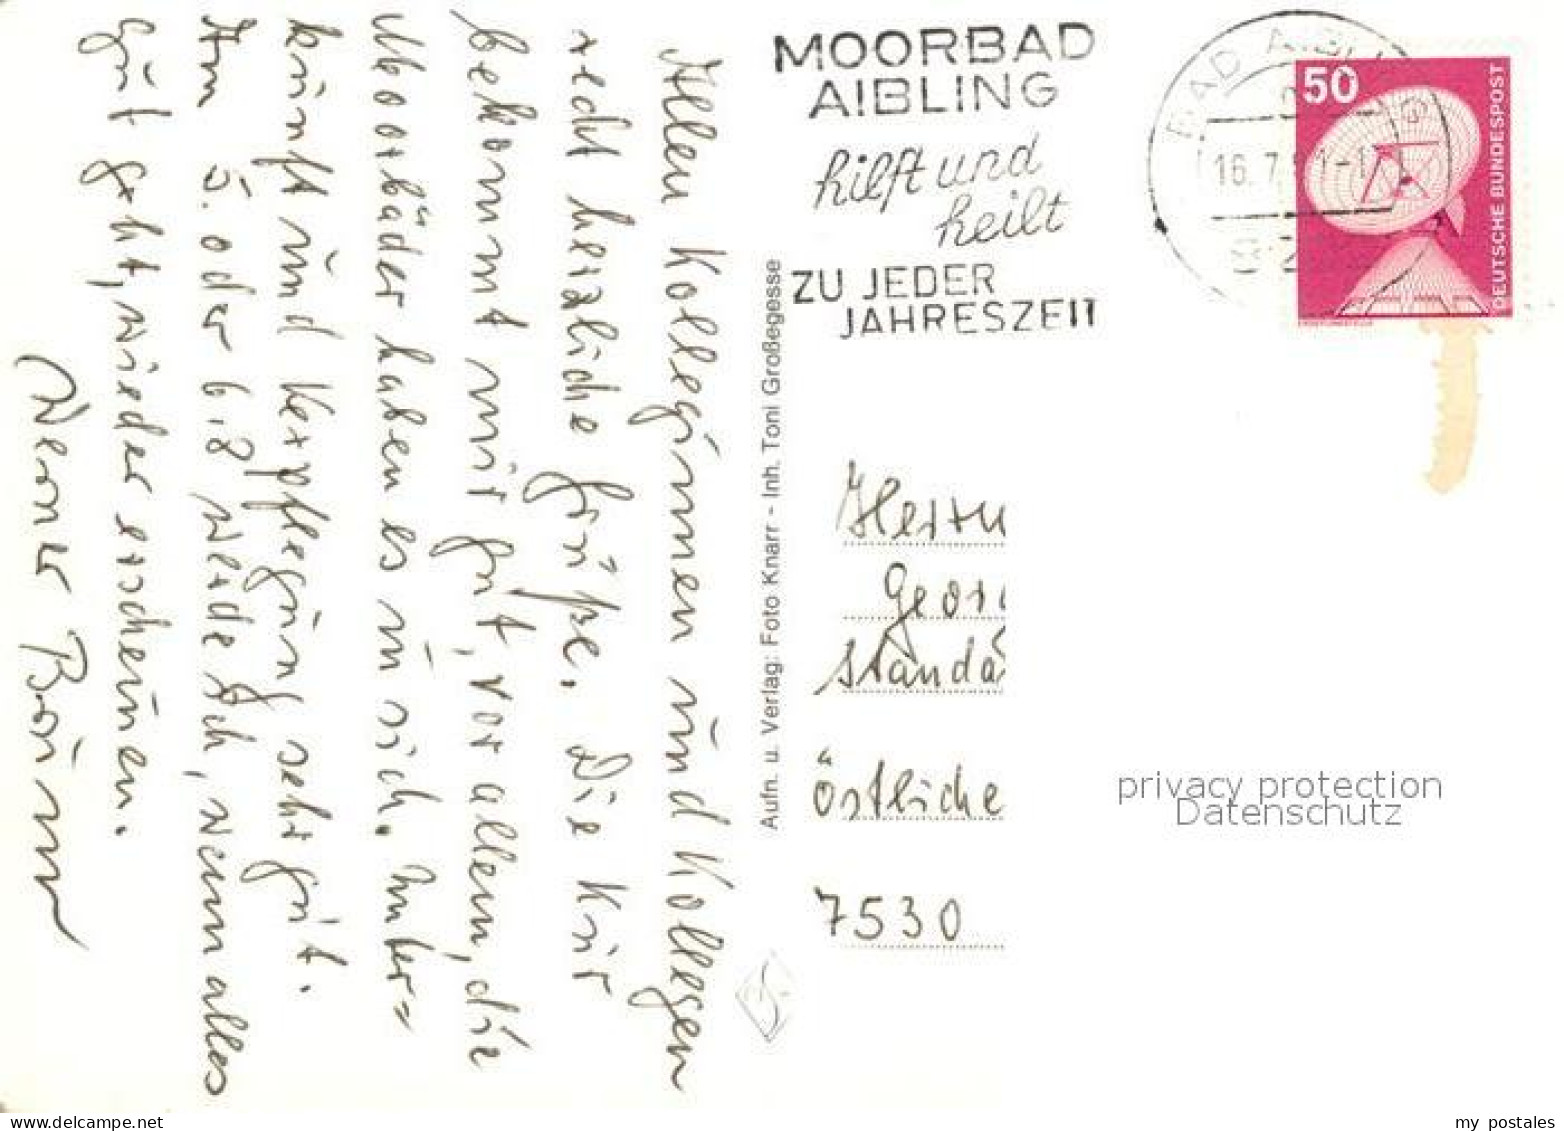 Allen Kolleginnen und Kollegen
recht herzliche Grüße. Die Kur
bekommt mir gut, vor allem, die
Moorbäder haben es in sich. Unter=
kunft und Verpflegung sehr gut.
Am 5. oder 6.8 werde ich, wenn alles
gut geht, wieder erscheinen.
Werner
Aufn. u. Verlag: Foto Knarr - Inh. Toni Großegesse
MOORBAD
AIBLING
hilft und
heilt
ZU JEDER
JAHRESZEIT
BAD AIBLING
16.7.
50
DEUTSCHE BUNDESPOST
Herrn
Geor
Standa
Östliche
7530
privacy protection
Datenschutz
my postales